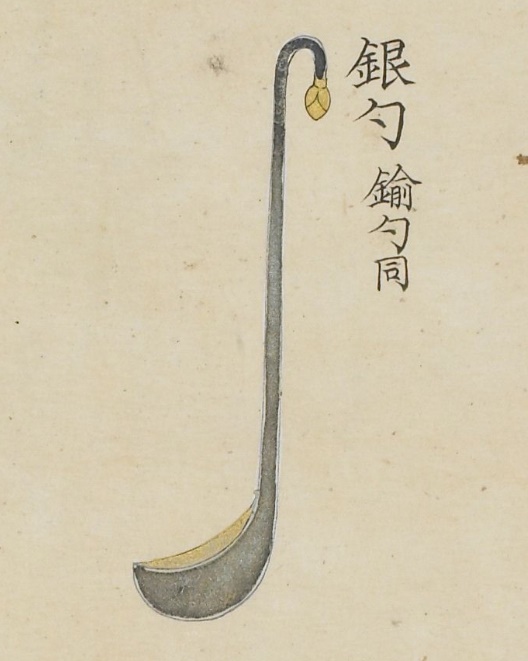 銀勺 鍮勺同